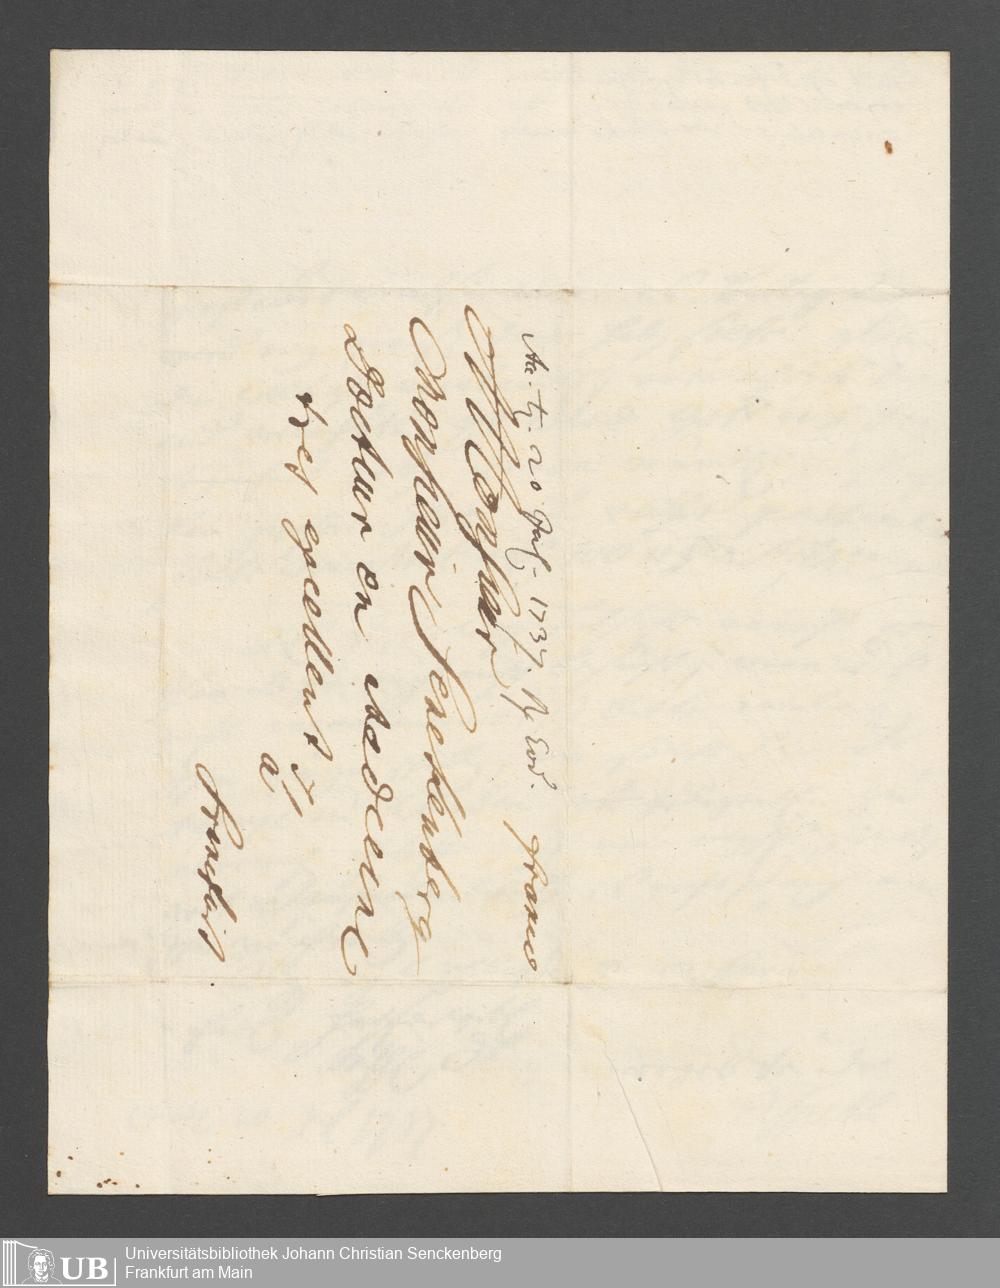 Acc. ♄. 20 Jul. 1737. R Eod.
franco
A Monsieur
Monsieur Senckenberg
Docteur en Medecine
tres excellent p
a
Francfort
UB Universitätsbibliothek Johann Christian Senckenberg
Frankfurt am Main